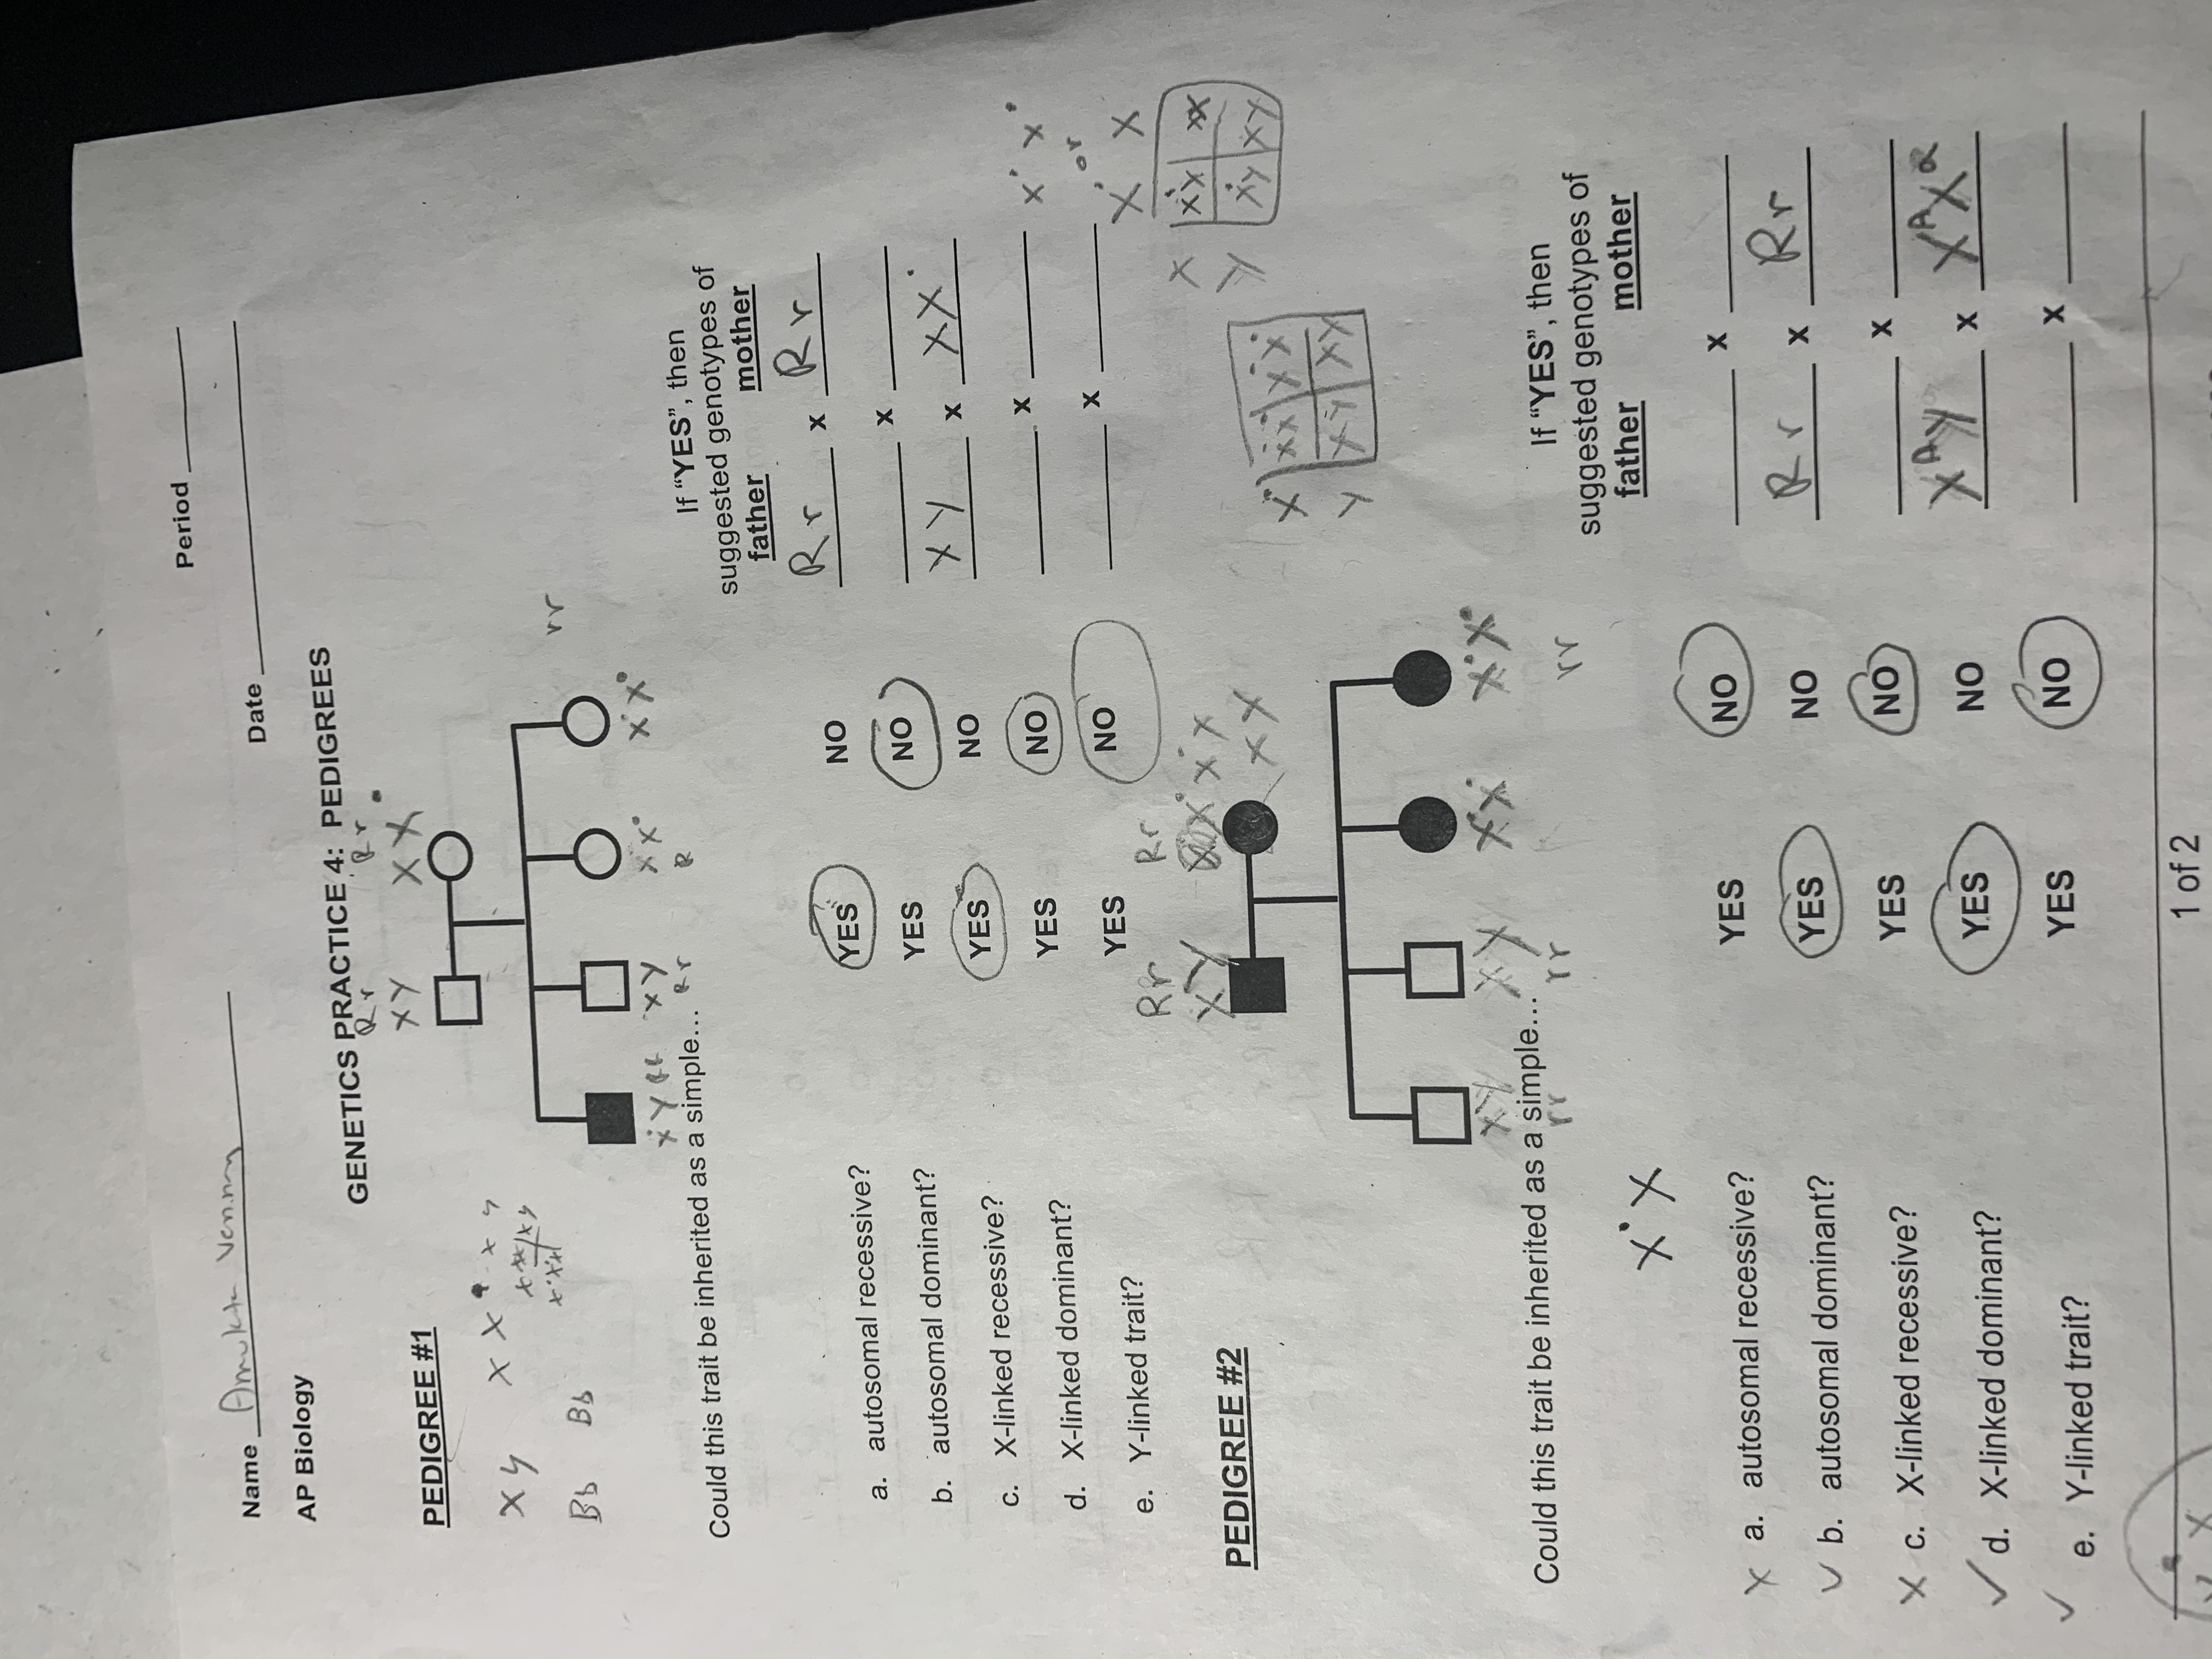 Period
Name Amukta
Date
AP Biology
GENETICS PRACTICE 4: PEDIGREES
Rr Rr
XY XX•
PEDIGREE #1
Xy XX• x y
Bb Bb
rr
X•Y RR XY XX• X•X•
Rr R
Could this trait be inherited as a simple…
If “YES”, then
suggested genotypes of
father mother
a. autosomal recessive? YES NO Rr x Rr
b. autosomal dominant? YES NO x
c. X-linked recessive? YES NO XY x XX•
d. X-linked dominant? YES NO x
e. Y-linked trait? YES NO x
X• X•
or
X• X
X X•X XX
Y X•Y XY
Rr Rr
XY X•X
XX
PEDIGREE #2
X• X•X• X•X•
Y XY XY
XY XY X•X• X•X•
Could this trait be inherited as a simple…
rr rr rr
If “YES”, then
suggested genotypes of
father mother
X•X
X a. autosomal recessive? YES NO x
✓ b. autosomal dominant? YES NO Rr x Rr
X c. X-linked recessive? YES NO x
✓ d. X-linked dominant? YES NO XᴬY x XᴬXᵃ
✓ e. Y-linked trait? YES NO x
1 of 2